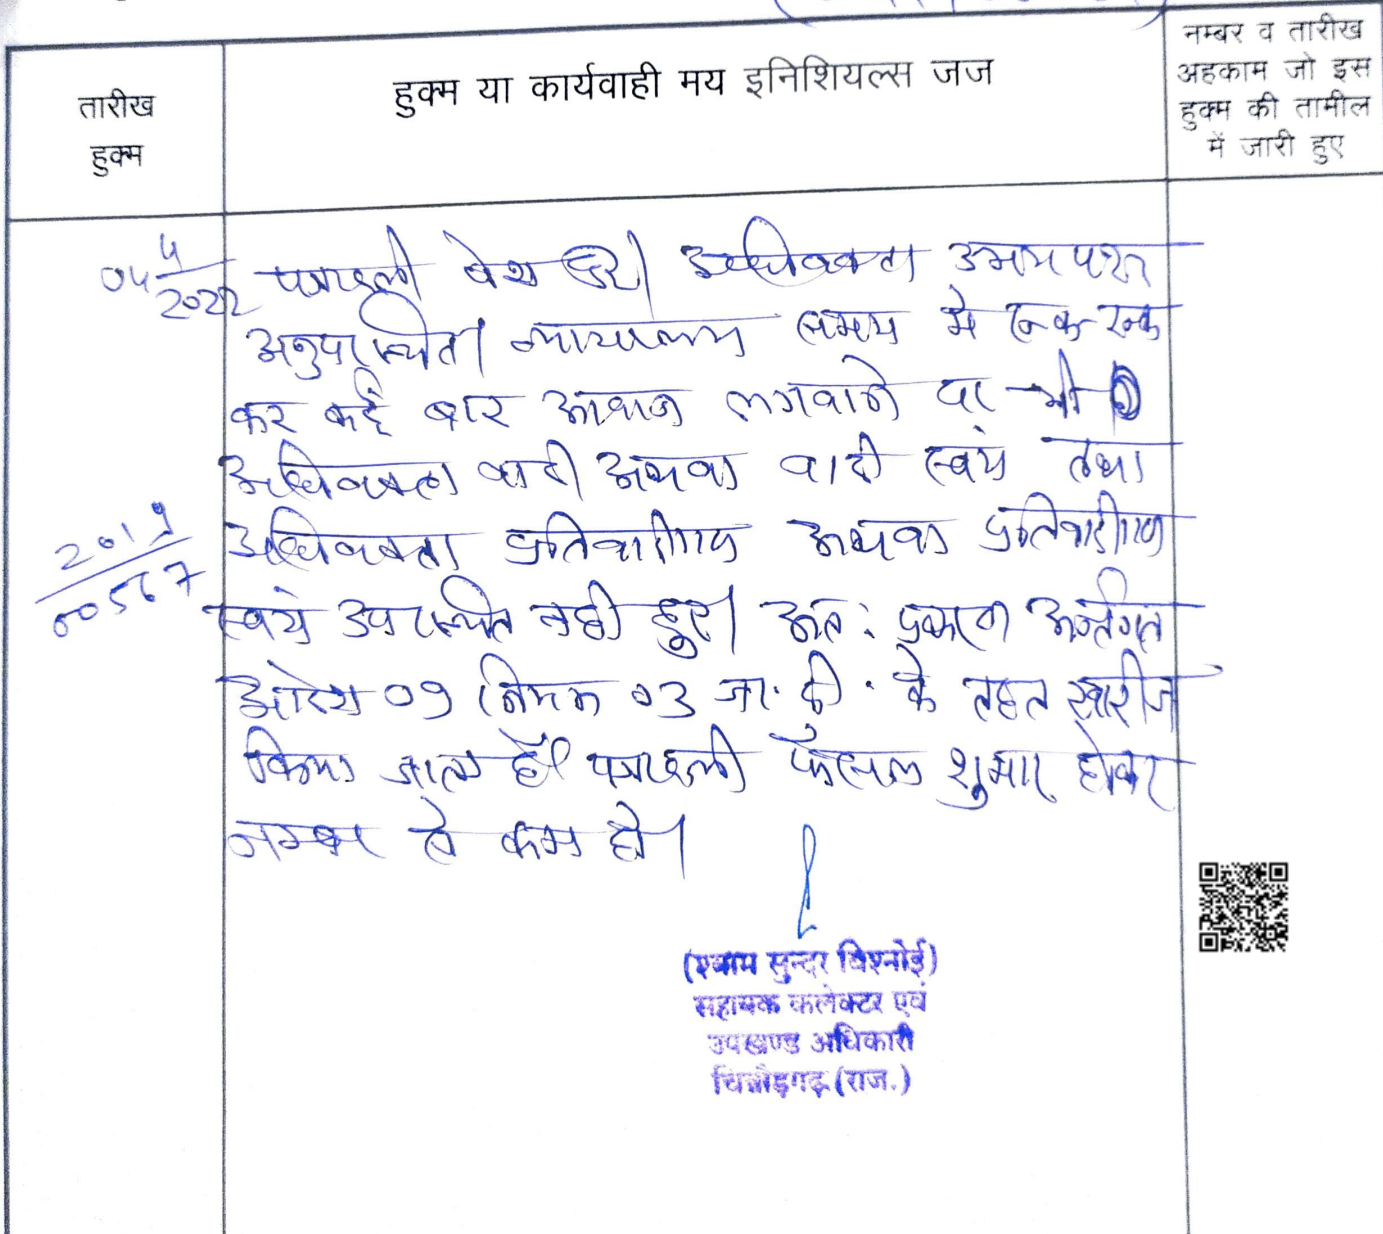 तारीख
हुक्म
हुक्म या कार्यवाही मय इनिशियल्स जज
नम्बर व तारीख
अहकाम जो इस
हुक्म की तामील
में जारी हुए
04/4/2022
पत्रावली पेश हुई। अधिवक्ता उभयपक्ष
अनुपस्थित। न्यायालय समय मे रूक-रूक
कर कई बार आवाज लगवाने पर भी
अधिवक्ता वादी अथवा वादी स्वयं तथा
2019/00567
अधिवक्ता प्रतिवादीगण अथवा प्रतिवादीगण
स्वयं उपस्थित नही हुए। अतः प्रकरण अन्तर्गत
आदेश 09 नियम 03 जा. दी. के तहत खारीज
किया जाता है। पत्रावली फैसल शुमार होकर
नम्बर से कम हो।
(श्याम सुन्दर विश्नोई)
सहायक कलेक्टर एवं
उपखण्ड अधिकारी
चित्तौड़गढ़ (राज.)